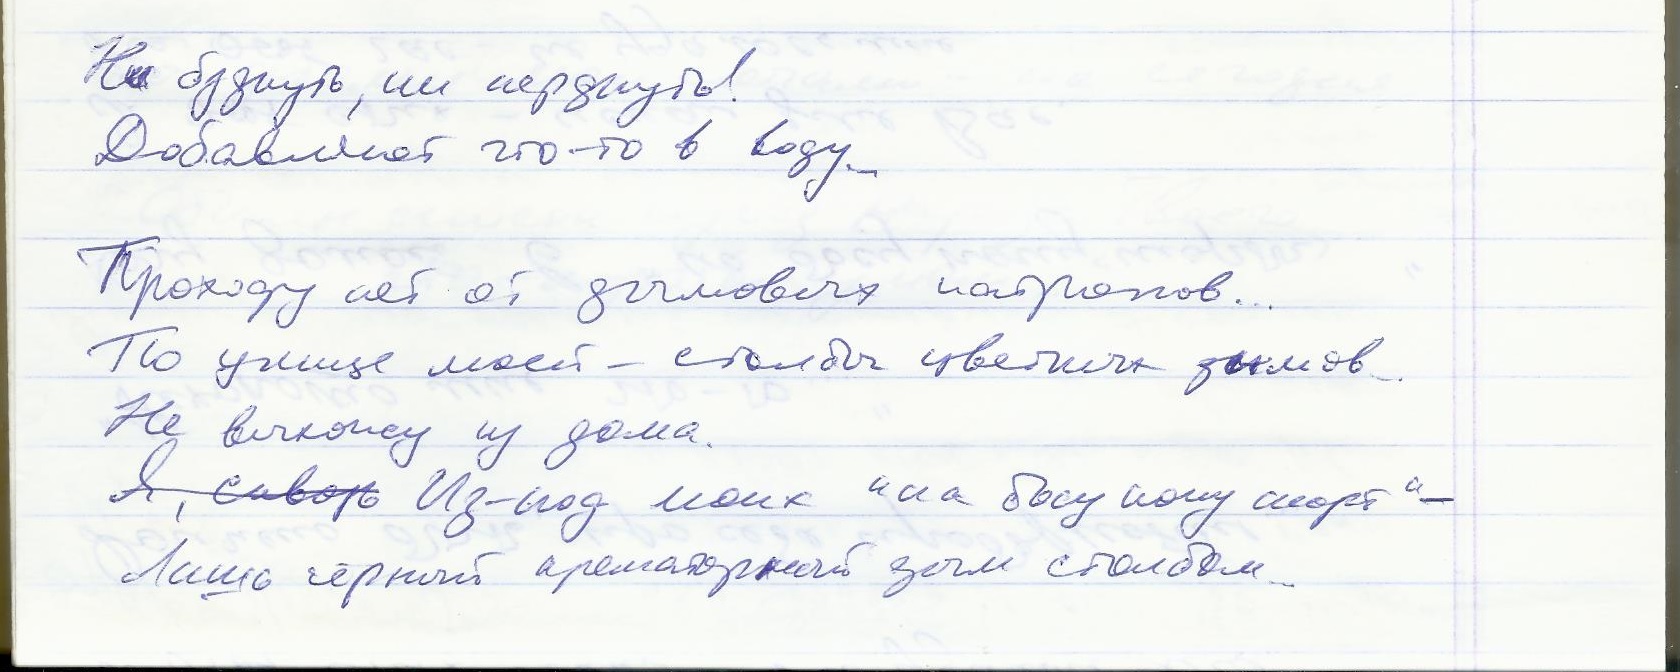 Ни бзднуть, ни перднуть!
Добавляют что-то в воду...
Проходу нет от дымовых патронов...
По улице моей – столбы цветных дымов...
Не выхожу из дома.
Из-под моих "на босу ногу шорт" –
Лишь чёрный крематорный дым столбом...